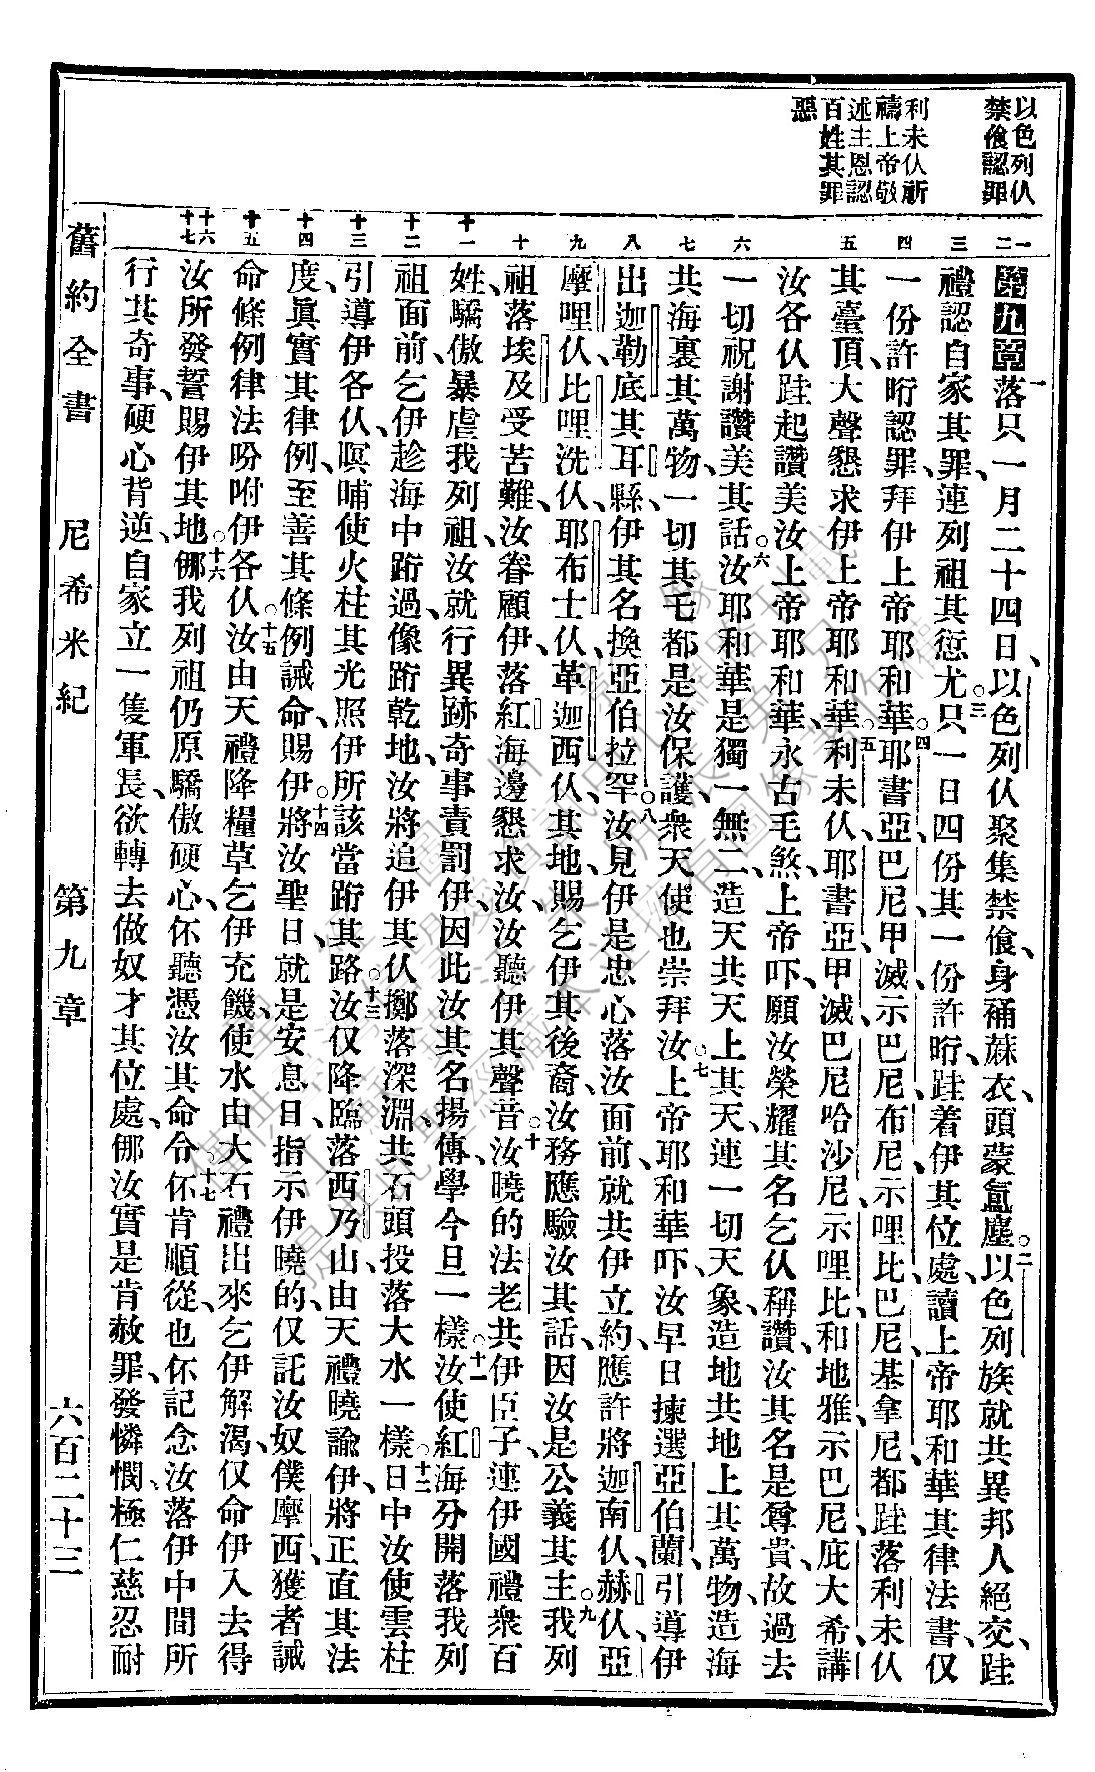 以色列仈
禁偹認罪
利未仈祈
禱上帝敬
述主恩認
百姓其罪
惡
一 二 三 四 五 六 七 八 九 十 十一 十二 十三 十四 十五 十六 十七
第九章落只一月二十四日、以色列仈聚集禁偹、身補蔴衣、頭蒙塵。二以色列族就共異邦人絕交、跬
禮認自家其罪、連列祖其愆尤。三只一日四份其一份許晌、跬着伊其位處、讀上帝耶和華其律法書、仅
一份許晌認罪、拜伊上帝耶和華。四耶書亞、巴尼、甲滅、示巴尼、布尼、示哩比、巴尼、基拿尼、都跬落利未仈
其臺頂、大聲懇求伊上帝耶和華。五利未仈、耶書亞、甲滅、巴尼、哈沙尼、示哩比、和地雅、示巴尼、庇大希、講
汝各仈跬起讚美汝上帝耶和華、永古毛煞、上帝吓、願汝榮耀其名乞仈稱讚、汝其名是尊貴、故過去
一切祝謝讚美其話。六汝耶和華是獨一無二、造天共天上其天、連一切天象、造地共地上其萬物、造海
共海裏其萬物、一切其毛都是汝保護、衆天使也崇拜汝。七上帝耶和華吓、汝早日揀選亞伯蘭、引導伊
出迦勒底其耳縣、伊其名換亞伯拉罕。八汝見伊是忠心落汝面前、就共伊立約、應許將迦南仈、赫仈、亞
摩哩仈、比哩洗仈、耶布士仈、革迦西仈、其地、賜乞伊其後裔、汝務應驗汝其話、因汝是公義其主。九我列
祖落埃及受苦難、汝眷顧伊、落紅海邊懇求汝、汝聽伊其聲音。十汝曉的法老共伊臣子、連伊國禮衆百
姓、驕傲暴虐我列祖、汝就行異跡奇事責罰伊、因此汝其名揚傳、學今旦一樣。十一汝使紅海分開落我列
祖面前、乞伊趁海中跡過、像跡乾地、汝將追伊其仈擲落深淵、共石頭投落大水一樣。十二日中汝使雲柱
引導伊各仈、暝晡使火柱其光照伊所該當跡其路。十三汝仅降臨落西乃山、由天禮曉諭伊、將正直其法
度、眞實其律例、至善其條例誡命、賜伊。十四將汝聖日、就是安息日、指示伊曉的、仅託汝奴僕摩西、獲者誡
命條例律法吩咐伊各仈。十五汝由天禮降糧草乞伊充饑、使水由大石禮出來乞伊解渴、仅命伊入去得
汝所發誓賜伊其地。十六㑚我列祖仍原驕傲硬心、伓聽憑汝其命令。十七伓肯順從、也伓記念汝落伊中間所
行其奇事、硬心背逆、自家立一隻軍長、欲轉去做奴才其位處、㑚汝實是肯赦罪、發憐憫、極仁慈忍耐
舊約全書　尼希米紀　第九章　六百二十三